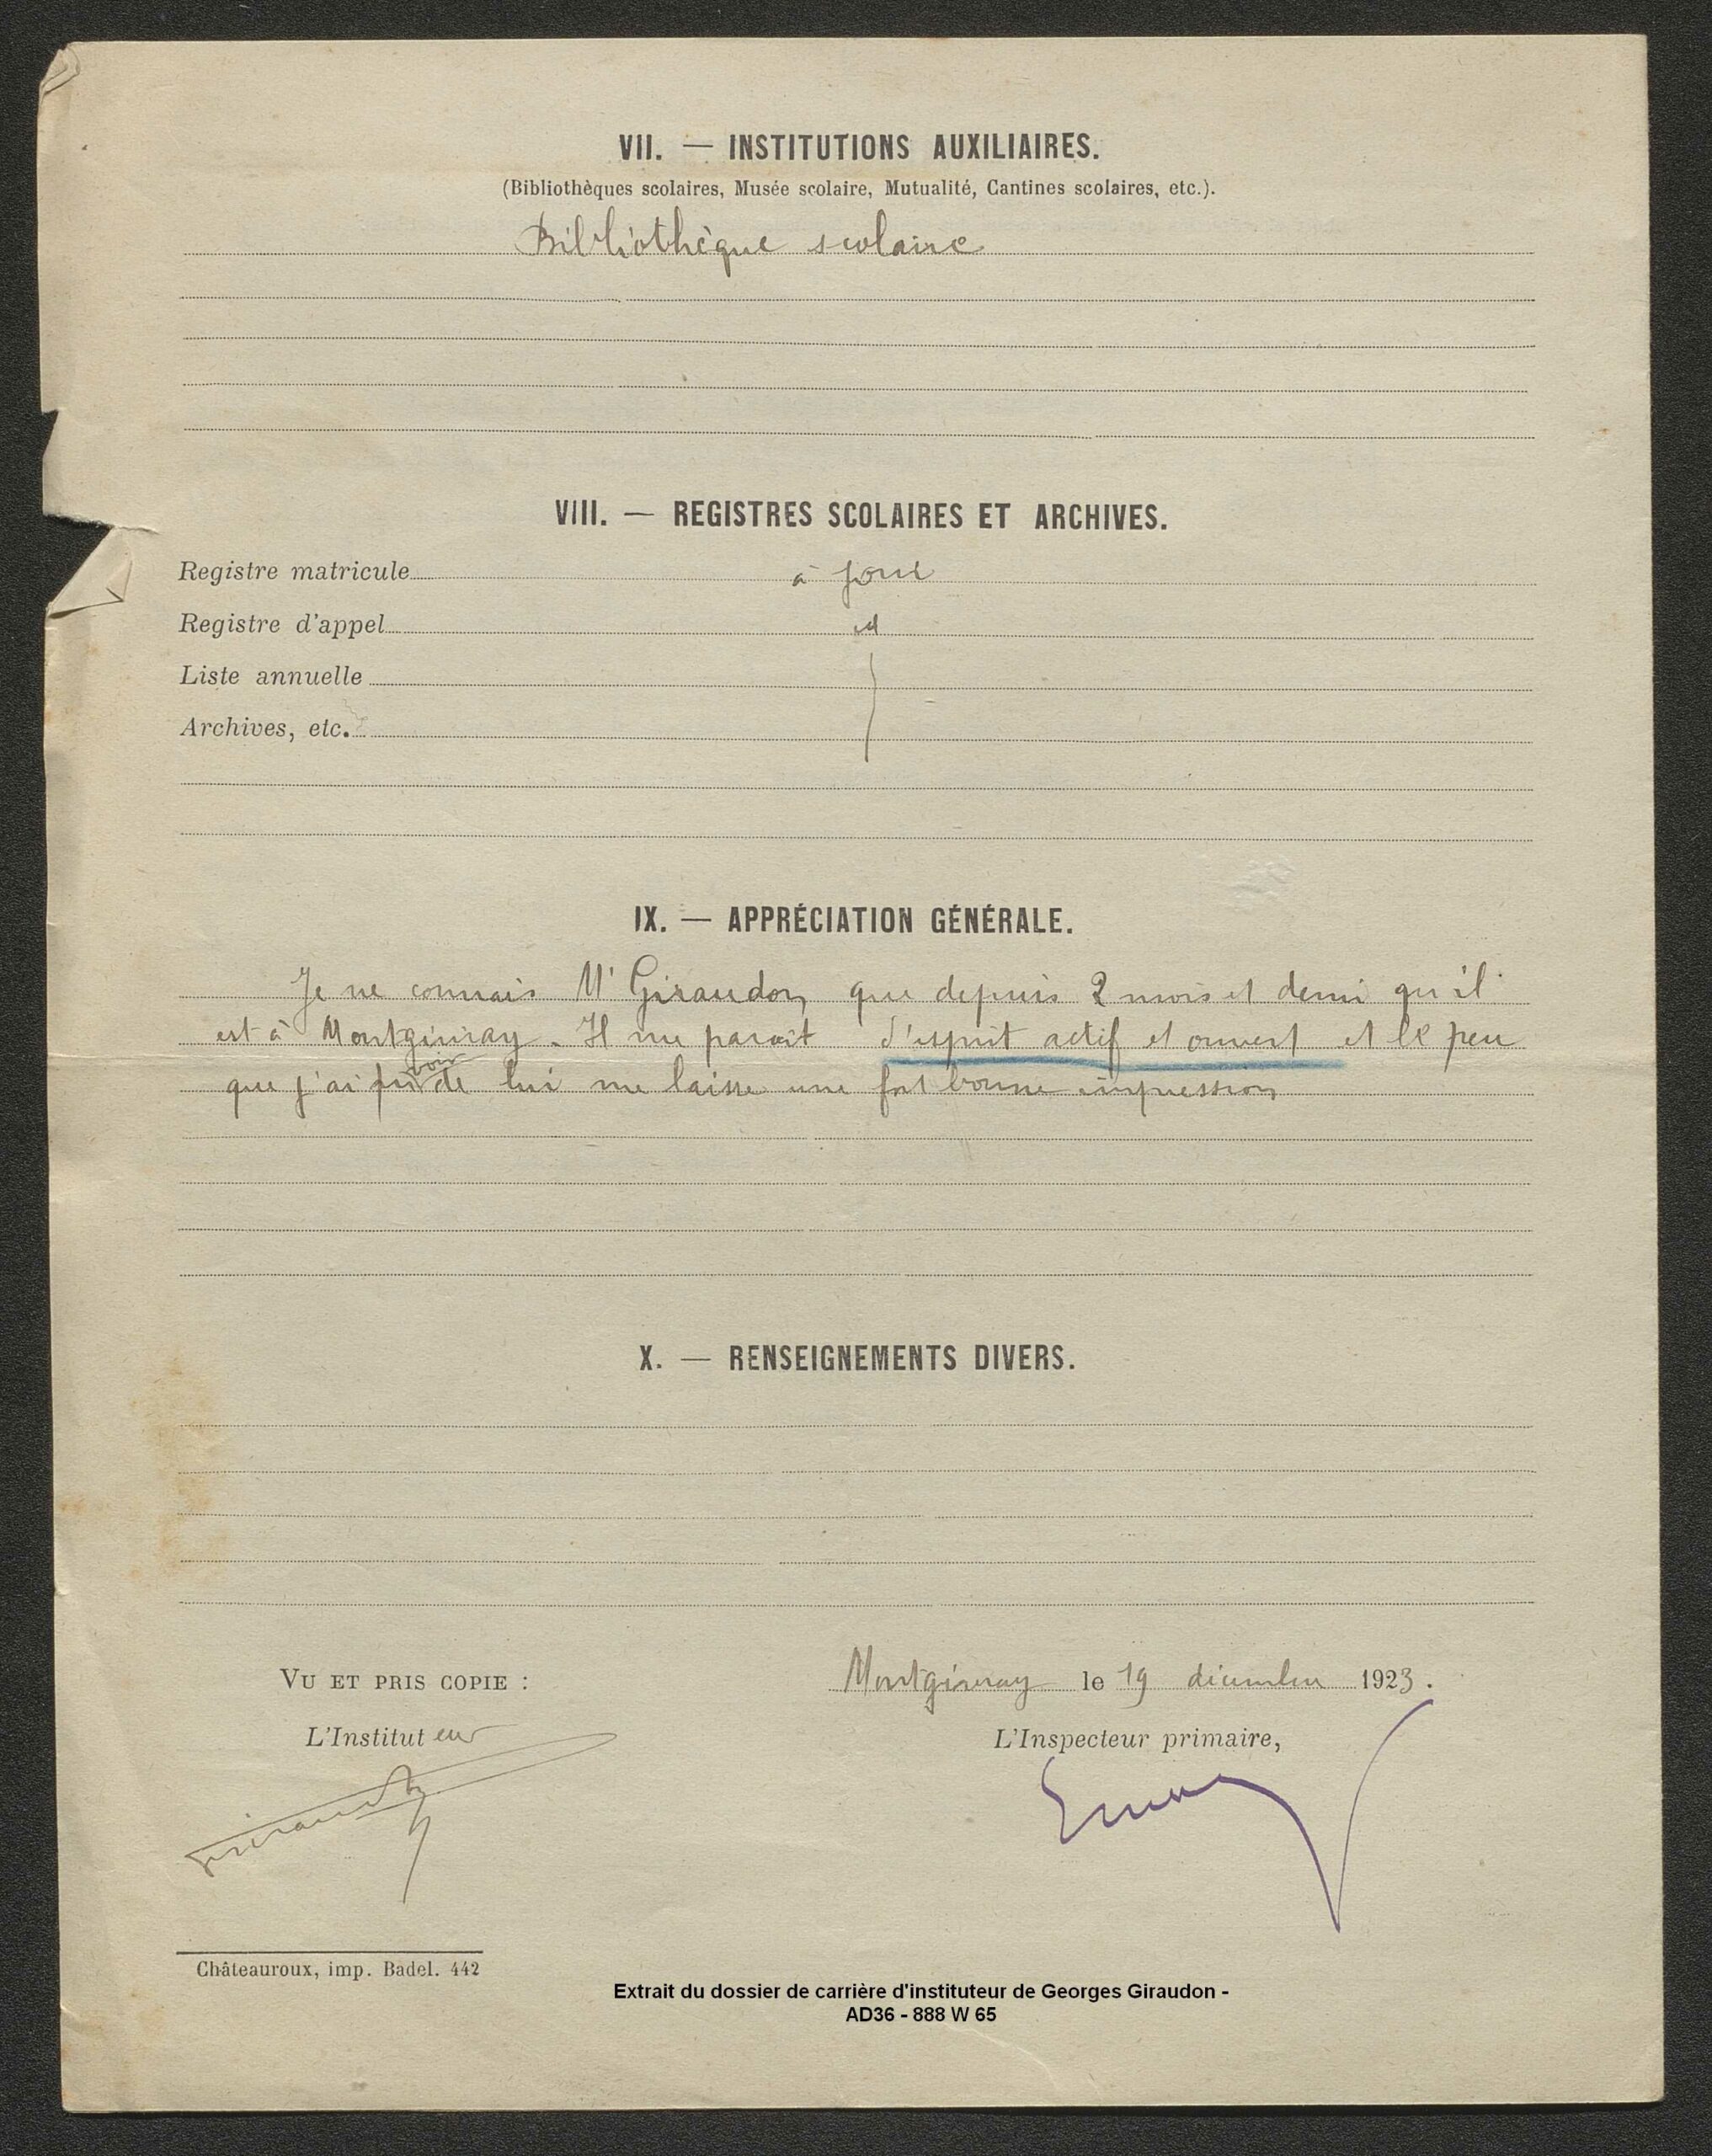 VII. — INSTITUTIONS AUXILIAIRES.
(Bibliothèques scolaires, Musée scolaire, Mutualité, Cantines scolaires, etc.).
Bibliothèque scolaire
VIII. — REGISTRES SCOLAIRES ET ARCHIVES.
Registre matricule à jour
Registre d'appel id
Liste annuelle
Archives, etc.
IX. — APPRÉCIATION GÉNÉRALE.
Je ne connais Mr Giraudon que depuis 2 mois et demi qu'il
est à Montgivray. Il me parait d'esprit actif et ouvert et le peu
que j'ai pu voir de lui me laisse une fort bonne impression
X. — RENSEIGNEMENTS DIVERS.
VU ET PRIS COPIE :
Montgivray le 19 décembre 1923.
L'Instituteur
L'Inspecteur primaire,
Giraudon
Châteauroux, imp. Badel. 442
Extrait du dossier de carrière d'instituteur de Georges Giraudon -
AD36 - 888 W 65